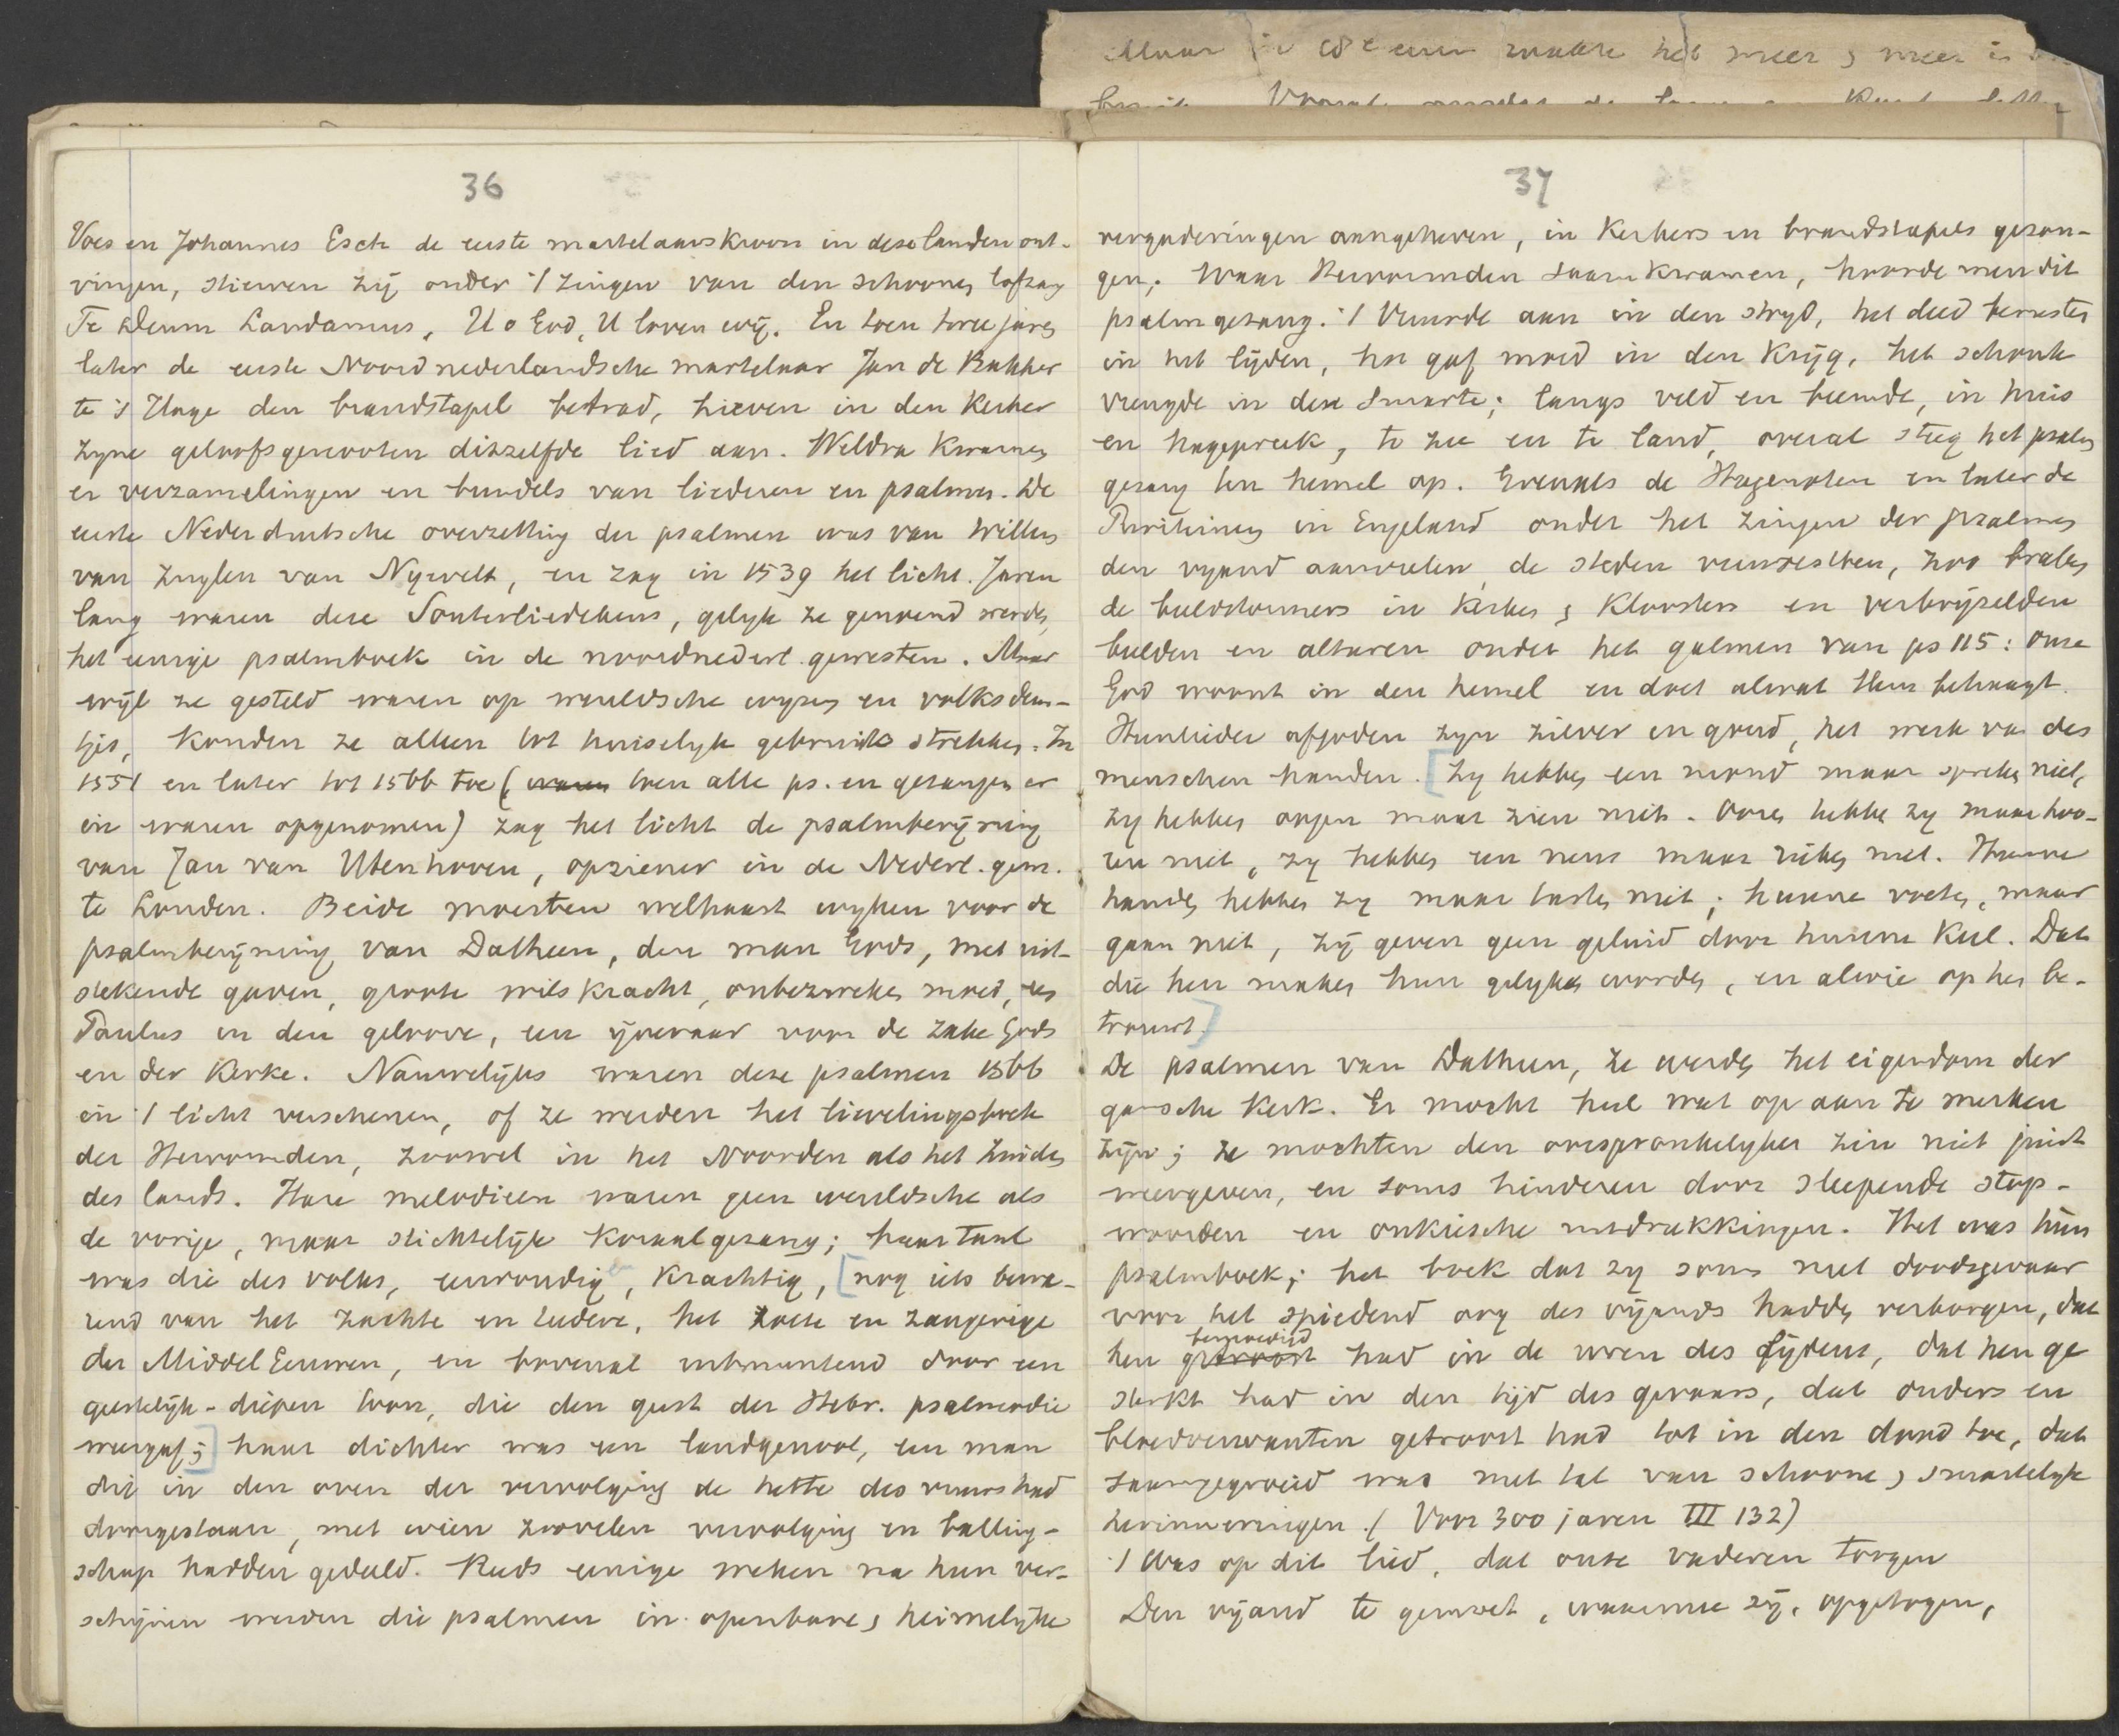 Maar in de eeuw maakte het meer & meer
36
Voes en Johannes Esch de eerste martelaarskroon in deze landen ont-
vingen, stierven zij onder 't zingen van den schoonen lofzang
Te Deum Laudamus, U o God, U loven wij. En toen twee jaren
later de eerste Noordnederlandsche martelaar Jan de Bakker
te 's Hage den brandstapel betrad, hieven in den Kerker
zyne geloofsgenooten ditzelfde lied aan. Weldra kwamen
er verzamelingen en bundels van liederen en psalmen. De
eerste Nederduitsche overzetting der psalmen was van Willem
van Zuylen van Nyevelt, en zag in 1539 het licht. Jaren
lang waren deze Souterliedekens, gelyk ze genoemd werden,
het eenige psalmboek in de noordnederl. gewesten. Maar
wijl ze gesteld waren op wereldsche wyzen en volksdeun-
tjes, konden ze alleen tot huiselyk gebruik strekken. In
1551 en later tot 1566 toe (waren toen alle ps. en gezangen er
in waren opgenomen) zag het licht de psalmberijming
van Jan van Utenhoven, opziener in de Nederl. gem.
te Londen. Beide moesten welhaast wyken voor de
psalmberijming van Datheen, den man Gods, met uit-
stekende gaven, groote wilskracht, onbezweken moed, een
Paulus in den geloove, een ijveraar voor de zake Gods
en der Kerke. Nauwelijks waren deze psalmen 1566
in 't licht verschenen, of ze werden het lievelingsboek
der Hervormden, zoowel in het Noorden als het Zuiden
des lands. Hare melodieën waren geen wereldsche als
de vorige, maar stichtelijk Koraalgezang; haar taal
was die des volks, eenvoudig, krachtig, [nog iets bewa-
rend van het zachte en teedere, het zoete en zangerige
der Middel Eeuwen, en bovenal uitmuntend door een
geestelijk-diepen toon, die den geest der Hebr. psalmodie
weergaf;] haar dichter was een landgenoot, een man
die in den oven der vervolging de hette des vuurs had
doorgestaan, met wien zoovelen vervolging en balling-
schap hadden gedeeld. Reeds eenige weken na hun ver-
schijnen werden die psalmen in openbare & heimelijke
37
vergaderingen aangeheven, in Kerkers en brandstapels gezon-
gen; Waar Hervormden saam kwamen, hoorde men dit
psalmgezang. 't Vuurde aan in den stryd, het deed berusten
in het lijden, het gaf moed in den Krijg, het schonk
vreugde in deze smarte; langs veld en beemde, in huis
en hagepreek, te zee en te land, overal steeg het psalm
gezang ten hemel op. Evenals de Hugenoten en later de
Puriteinen in Engeland onder het zingen der psalmen
den vyand aanvielen, de steden veroverden, zoo braken
de beeldstormers in Kerken & Kloosters en verbrijzelden
beelden en altaren onder het galmen van ps 115: Onze
God woont in den hemel en doet alwat Hem behaagt.
Hunlieder afgoden zyn zilver en goud, het werk van des
menschen handen. [Zy hebben een mond maar spreken niet,
zy hebben oogen maar zien niet. Ooren hebben zy maar hoo-
ren niet, zy hebben een neus maar rieken niet. Hunne
handen hebben zy maar tasten niet; hunne voeten, maar
gaan niet, zij geven geen geluid door hunne Keel. Dat
die hen maken hun gelyken worden, en alwie op hen be-
trouwt.]
De psalmen van Datheen, ze werden het eigendom der
gansche Kerk. Er mocht heel wat op aan te merken
zijn; ze mochten den oorspronkelyken zin niet juist
weergeven, en soms hinderen door sleepende stop-
woorden en onkiesche uitdrukkingen. Het was hùn
psalmboek; het boek dat zy soms met doodsgevaar
voor het spiedend oog des vijands hadden verborgen, dat
hen getroost bemoedigd had in de uren des lijdens, dat hen ge
sterkt had in den tijd des gevaars, dat ouders en
bloedverwanten getroost had tot in den dood toe, dat
saamgegroeid was met tal van schoone & smartelyke
herinneringen. (Voor 300 jaren III 132)
't Was op dit lied, dat onze vaderen togen
Den vijand te gemoet, waarmee zij, opgetogen,